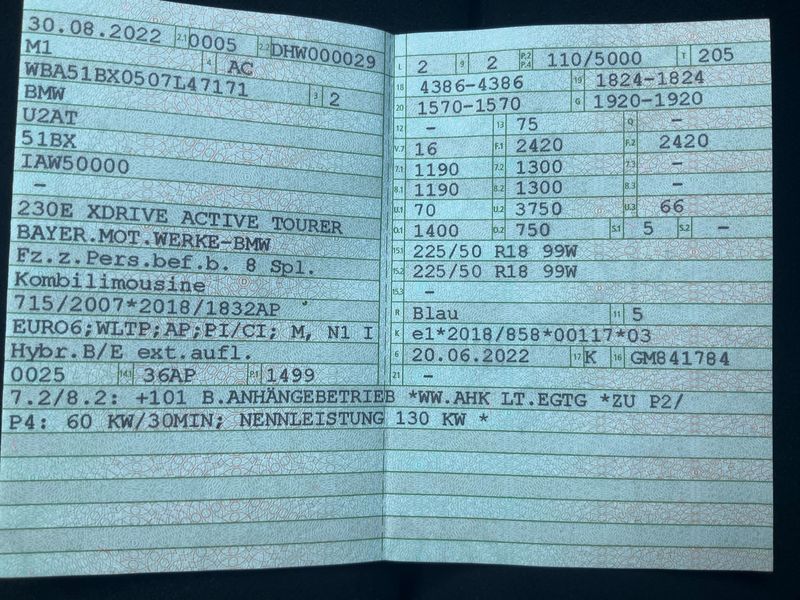 30.08.2022 2.1 0005 2.2 DHW000029
M1 4 AC
WBA51BX0507L47171 3 2
BMW
U2AT
51BX
IAW50000
–
230E XDRIVE ACTIVE TOURER
BAYER.MOT.WERKE-BMW
Fz.z.Pers.bef.b. 8 Spl.
Kombilimousine
715/2007*2018/1832AP
EURO6;WLTP;AP;PI/CI; M, N1 I
Hybr.B/E ext.aufl.
0025 14.1 36AP P.1 1499
L 2 9 2 P.2 P.4 110/5000 T 205
18 4386-4386 19 1824-1824
20 1570-1570 G 1920-1920
12 – 13 75 Q –
V.7 16 F.1 2420 F.2 2420
7.1 1190 7.2 1300 7.3 –
8.1 1190 8.2 1300 8.3 –
U.1 70 U.2 3750 U.3 66
O.1 1400 O.2 750 S.1 5 S.2 –
15.1 225/50 R18 99W
15.2 225/50 R18 99W
15.3 –
R Blau 11 5
K e1*2018/858*00117*03
6 20.06.2022 17 K 16 GM841784
21 –
7.2/8.2: +101 B.ANHÄNGEBETRIEB *WW.AHK LT.EGTG *ZU P2/
P4: 60 KW/30MIN; NENNLEISTUNG 130 KW *